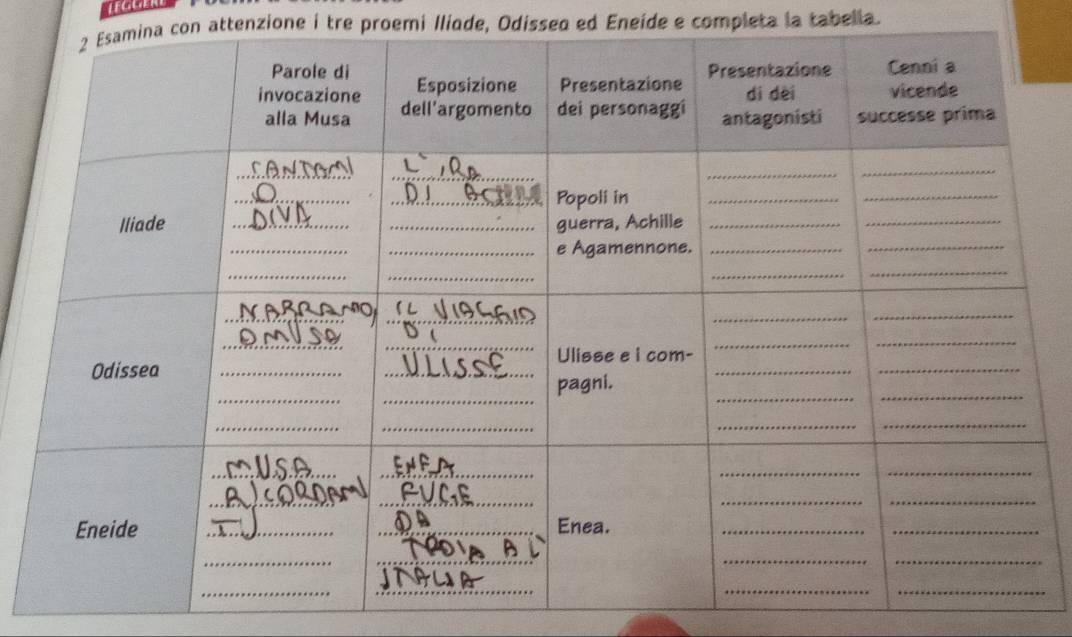 LEGGERE
2 Esamina con attenzione i tre proemi Iliade, Odissea ed Eneide e completa la tabella.
Parole di invocazione alla Musa
Esposizione dell'argomento
Presentazione dei personaggi
Presentazione di dèi antagonisti
Cenni a vicende successe prima
Iliade
CANTAMI
O
DIVA
L'IRA
DI ACHILLE
Popoli in
guerra, Achille
e Agamennone.
Odissea
NARRAMO,
O MUSA
IL VIAGGIO
DI
ULISSE
Ulisse e i com-
pagni.
Eneide
MUSA
RICORDAMI
TU
ENEA
FUGE
DA
TROIA A L'
ITALIA
Enea.